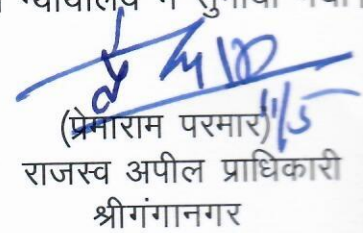 न्यायालय में सुनाया गया
(प्रेमाराम परमार)
11/5
राजस्व अपील प्राधिकारी
श्रीगंगानगर